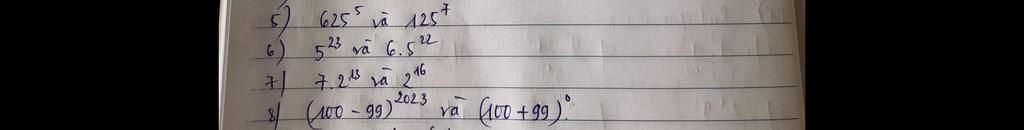 5) 625⁵ và 125⁷
6) 5²³ và 6.5²²
7) 7.2¹³ và 2¹⁶
8) (100 - 99)²⁰²³ và (100 + 99)⁰.